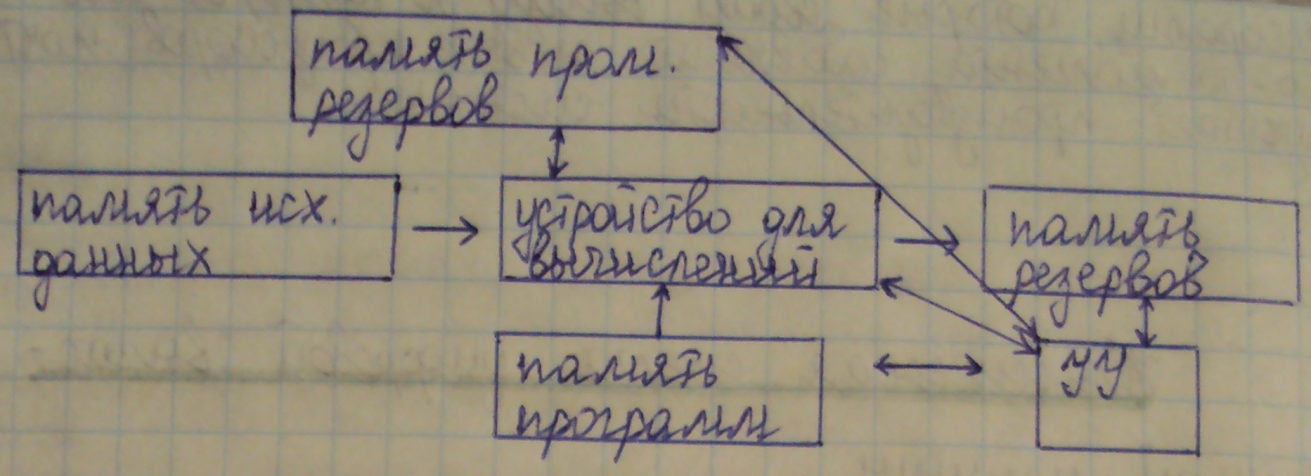 память пром.
резервов
память исх.
данных
устройство для
вычислений
память
резервов
память
программ
УУ